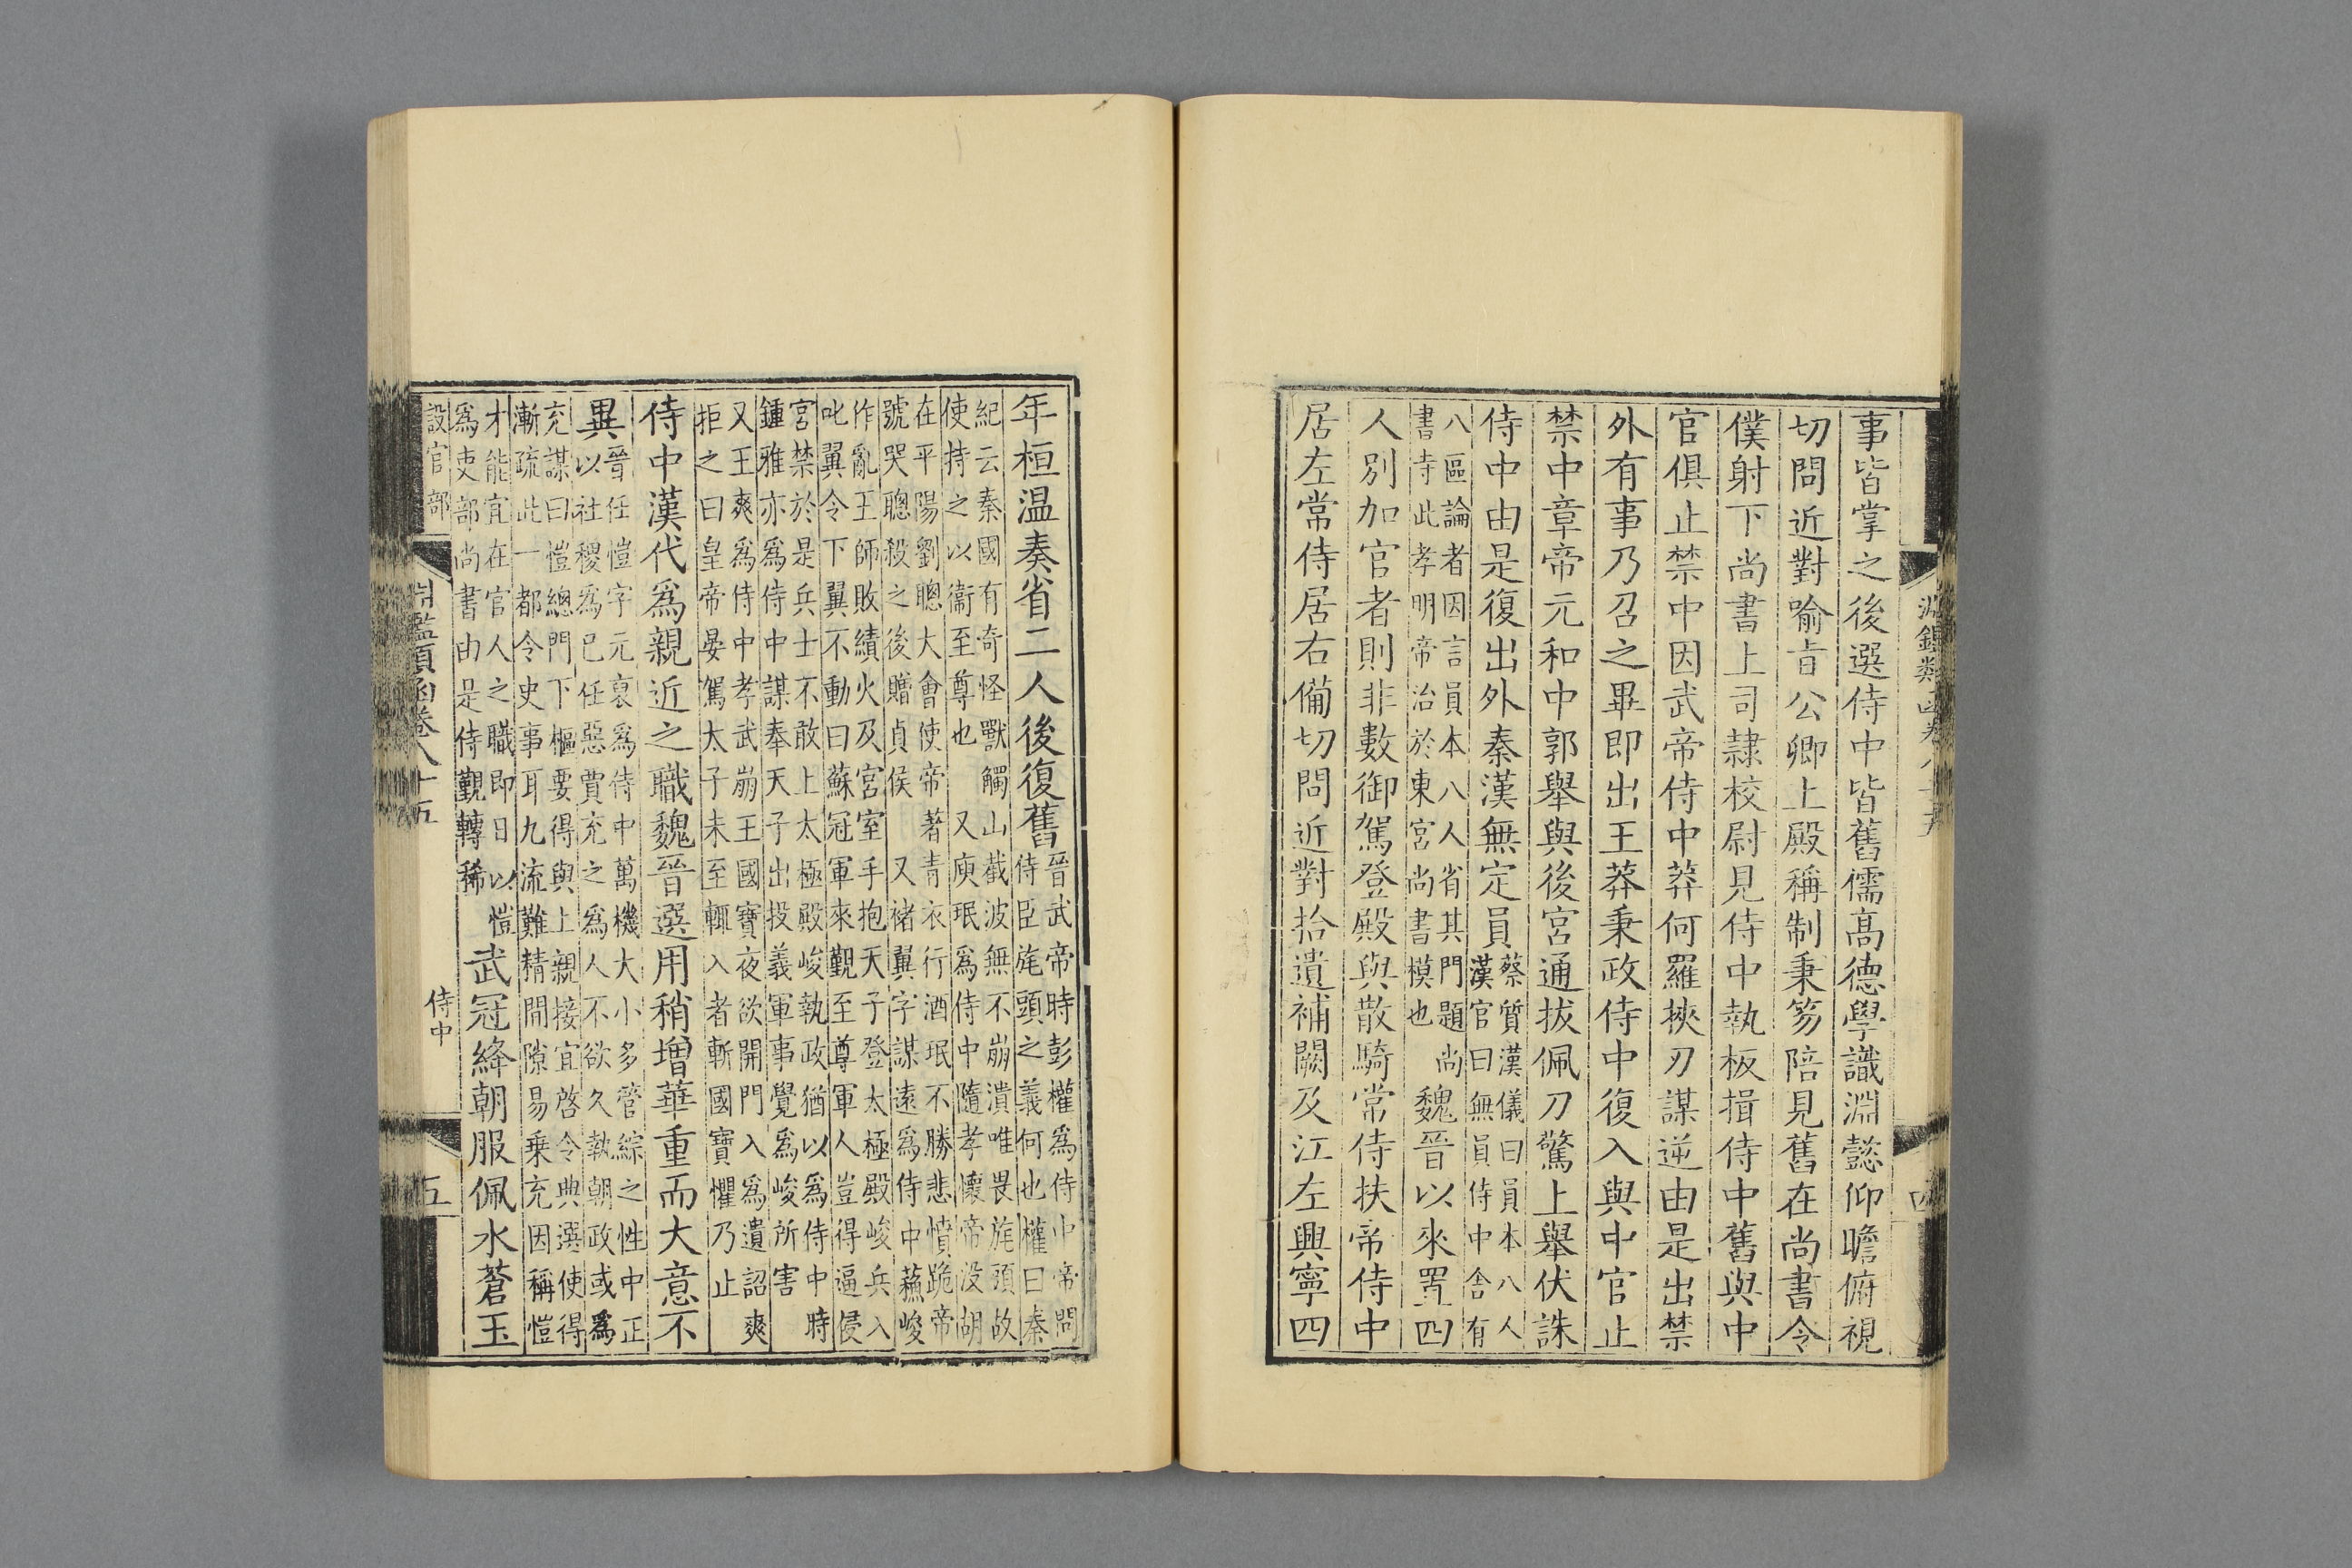 淵鑑類函卷八十五
四
事皆掌之後選侍中皆舊儒髙德學識淵懿仰瞻俯視
切問近對喻旨公卿上殿稱制秉笏陪見舊在尚書令
僕射下尚書上司隸校尉見侍中執板揖侍中舊與中
官俱止禁中因武帝侍中莽何羅挾刃謀逆由是出禁
外有事乃召之畢即出王莽秉政侍中復入與中官止
禁中章帝元和中郭舉與後宮通拔佩刀驚上舉伏誅
侍中由是復出外秦漢無定員
蔡質漢儀曰員本八人
漢官曰無員侍中舍有
八區論者因言員本八人省其門題尚
書寺此孝明帝治於東宮尚書模也
魏晉以來置四
人別加官者則非數御駕登殿與散騎常侍扶帝侍中
居左常侍居右備切問近對拾遺補闕及江左興寧四
年桓温奏省二人後復舊
晉武帝時彭權爲侍中帝問
侍臣旄頭之義何也權曰秦
紀云秦國有奇怪獸觸山截波無不崩潰唯畏旄頭故
使持之以衞至尊也 又庾珉爲侍中隨孝懷帝没胡
在平陽劉聰大會使帝著青衣行酒珉不勝悲憤跪帝
號哭聰殺之後贈貞侯 又褚翼字謀遠爲侍中蘓峻
作亂王師敗績火及宮室手抱天子登太極殿峻兵入
叱翼令下翼不動曰蘇冠軍來覲至尊軍人豈得逼侵
宮禁於是兵士不敢上太極殿峻執政猶以爲侍中時
鍾雅亦爲侍中謀奉天子出投義軍事覺爲峻所害
又王爽爲侍中孝武崩王國寶夜欲開門入爲遺詔爽
拒之曰皇帝晏駕太子未至輒入者斬國寶懼乃止
侍中漢代爲親近之職魏晉選用稍增華重而大意不
異
晉任愷字元裒爲侍中萬機大小多管綜之性中正
以社稷爲已任惡賈充之爲人不欲久執朝政或爲
充謀曰愷總門下樞要得與上親接宜啓令典選使得
漸疏此一都令史事耳九流難精間隙易乗充因稱愷
才能宜在官人之職即日以愷
爲吏部尚書由是侍覲轉稀
武冠絳朝服佩水蒼玉
設官部
淵鑑類函卷八十五
侍中
五